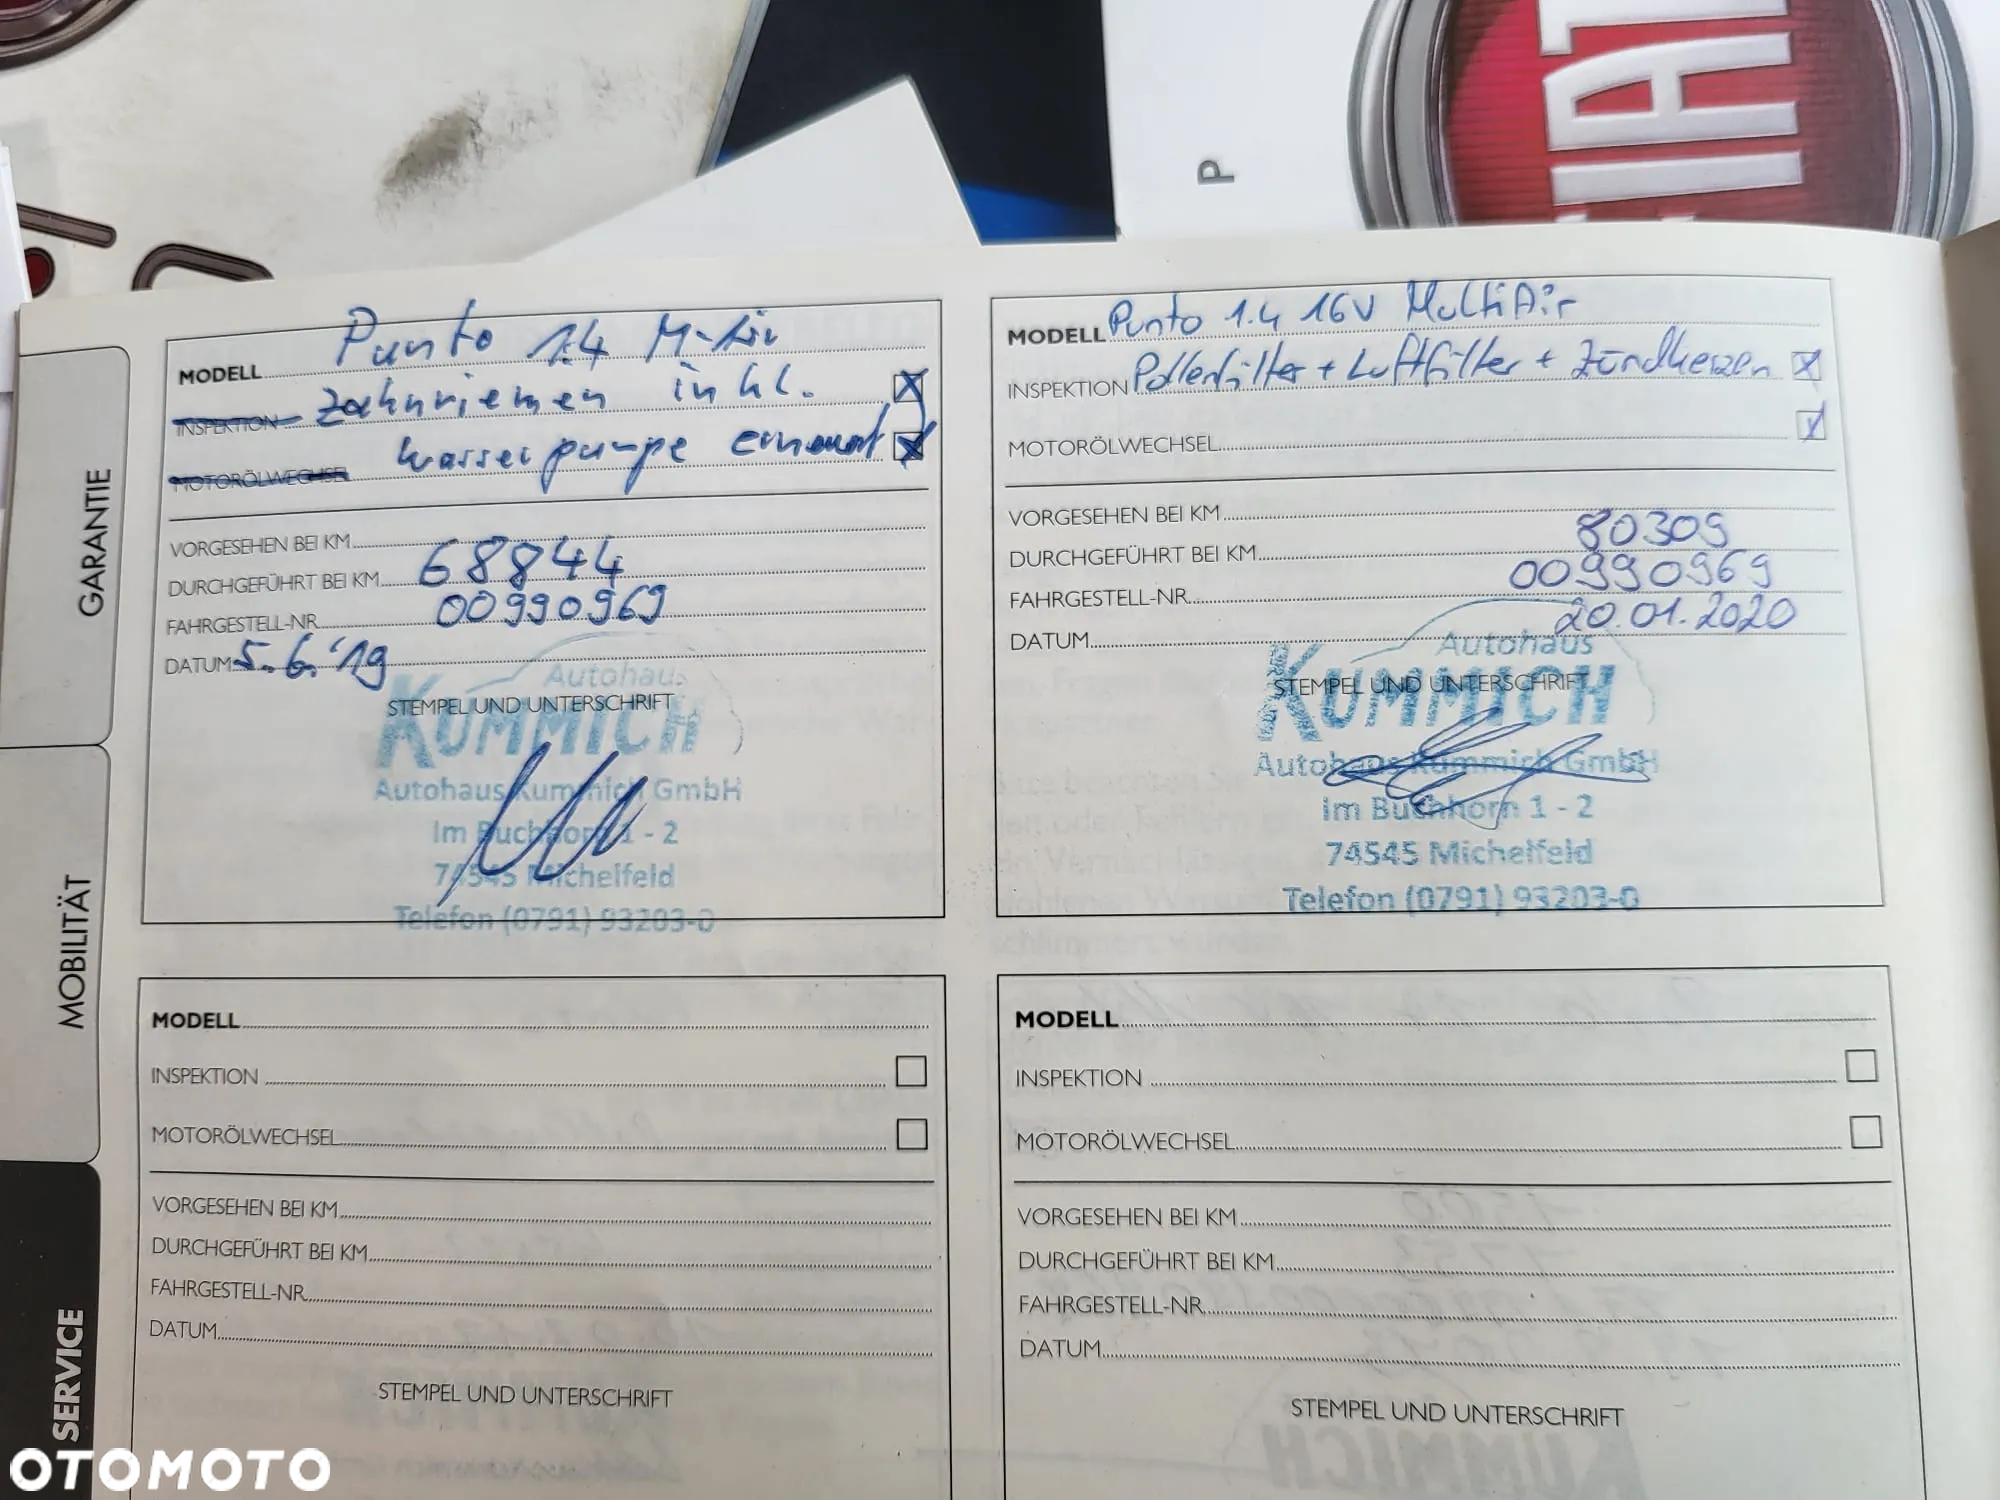 FIAT
P
GARANTIE
MOBILITÄT
SERVICE
MODELL Punto 1.4 M-Air
INSPEKTION Zahnriemen inkl.
MOTORÖLWECHSEL Wasserpumpe erneuert
VORGESEHEN BEI KM
DURCHGEFÜHRT BEI KM 68844
FAHRGESTELL-NR. 00990969
DATUM 5.6.'19
Autohaus
STEMPEL UND UNTERSCHRIFT
KUMMICH
Autohaus Kummich GmbH
Im Buchhorn 1 - 2
74545 Michelfeld
Telefon (0791) 93203-0
MODELL Punto 1.4 16V MultiAir
INSPEKTION Pollenfilter + Luftfilter + Zündkerzen
MOTORÖLWECHSEL
VORGESEHEN BEI KM
DURCHGEFÜHRT BEI KM 80309
FAHRGESTELL-NR. 00990969
DATUM 20.01.2020
Autohaus
STEMPEL UND UNTERSCHRIFT
KUMMICH
Autohaus Kummich GmbH
Im Buchhorn 1 - 2
74545 Michelfeld
Telefon (0791) 93203-0
MODELL
INSPEKTION
MOTORÖLWECHSEL
VORGESEHEN BEI KM
DURCHGEFÜHRT BEI KM
FAHRGESTELL-NR.
DATUM
STEMPEL UND UNTERSCHRIFT
MODELL
INSPEKTION
MOTORÖLWECHSEL
VORGESEHEN BEI KM
DURCHGEFÜHRT BEI KM
FAHRGESTELL-NR.
DATUM
STEMPEL UND UNTERSCHRIFT
OTOMOTO